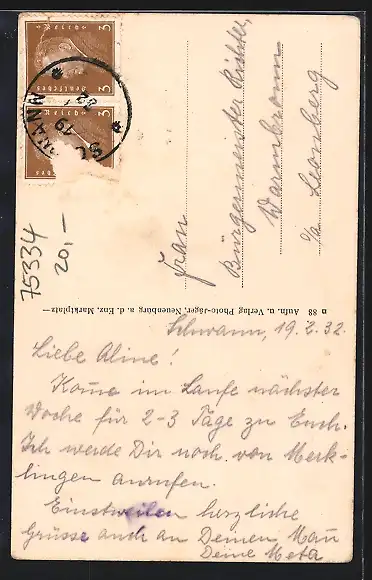 Schwann, 19.2.32.
Liebe Aline!
Kom̄e im Laufe nächster
Woche für 2-3 Tage zu Euch.
Ich werde Dir noch von Merk-
lingen anrufen.
Einstweilen herzliche
Grüsse auch an Deinen Man̄
Deine Meta
Frau
Bürgermeister Richter
Warmbronn
b/a Leonberg
88 Aufn. u. Verlag Photo-Jäger, Neuenbürg a. d. Enz, Marktplatz
3 Deutsches Reich 3
3 Deutsches Reich
SCHWANN
19
32
75334
20,-